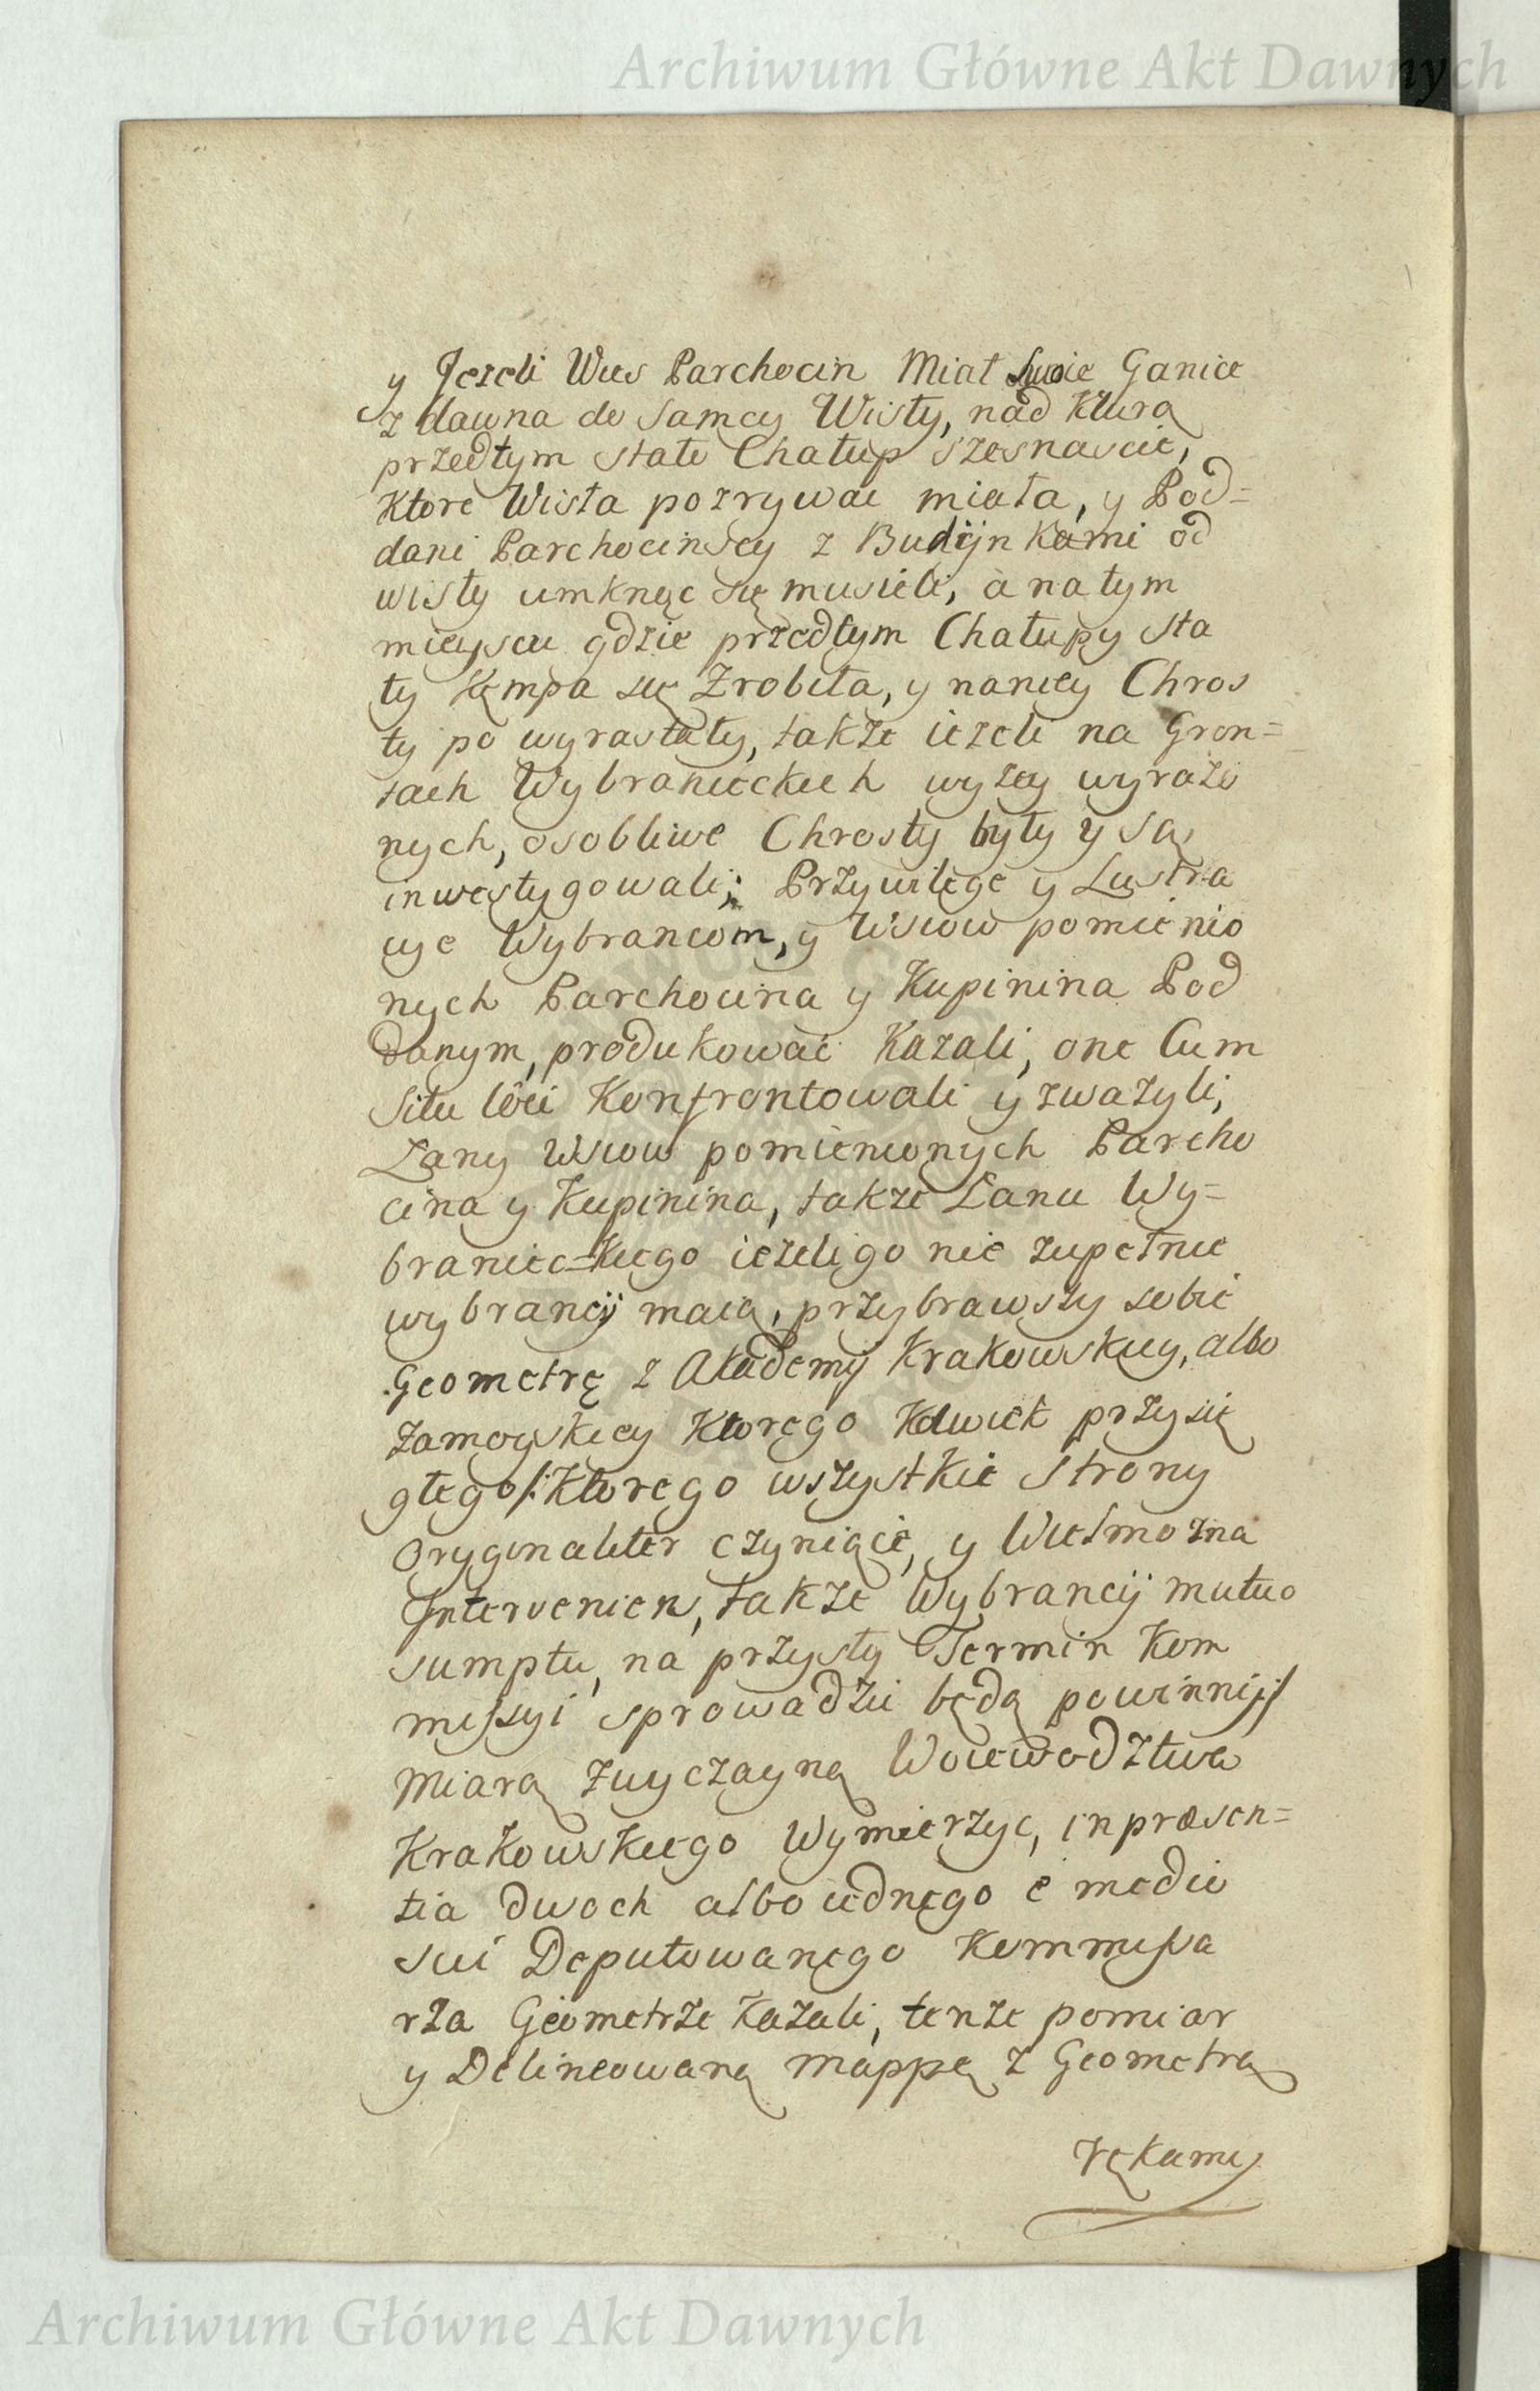 Archiwum Główne Akt Dawnych
y Jezeli Wies Parchocin Miał Swoie Ganice
z dawna do samey Wisły, nad Kturą
przedtym stało Chałup szesnascie,
Ktore Wisła pozrywac miała, y Pod=
dani Parchocinscy z Budijnkami od
wisły umknąc się musieli, a na tym
mieyscu gdzie przedtym Chałupy sta
ły Kępa się Zrobiła, y naniey Chros
ty po wyrastały, także ieżeli na Gron=
tach Wybranieckich wyzey wyrażo
nych, osobliwe Chrosty były y są,
inwestygowali; Przywilege y Lustra
cye Wybrancom, y Wsiow pomienio
nych Parchocina y Kupinina Pod
danym, produkować Kazali, one Cum
Situ lôci Konfrontowali y zważyli,
Łany Wsiow pomienionych Parcho
cina y Kupinina, także Łanu Wy=
braniec=kiego ieżeli go nie zupełnie
wybrancij maią, przybrawszy sobie
Geometrę z Akademij Krakowskiey, albo
Zamoyskiey Ktorego Kolwiek przysię
głego/: Ktorego wszystkie strony
Oryginaliter czyniące, y Wielmożna
Interveniens, także Wybrancij mutuo
sumptu, na przyszły Termin Kom
missyi sprowadzić będą powinni:/
Miarą Zwyczayną Woiewodztwa
Krakowskiego Wymierzyc, in præsen=
tia dwoch albo iednego e medio
sui Deputowanego Kommissa
rza Geometrze kazali, tenże pomiar
y Delineowaną mappę z Geometrą
rękami
Archiwum Główne Akt Dawnych